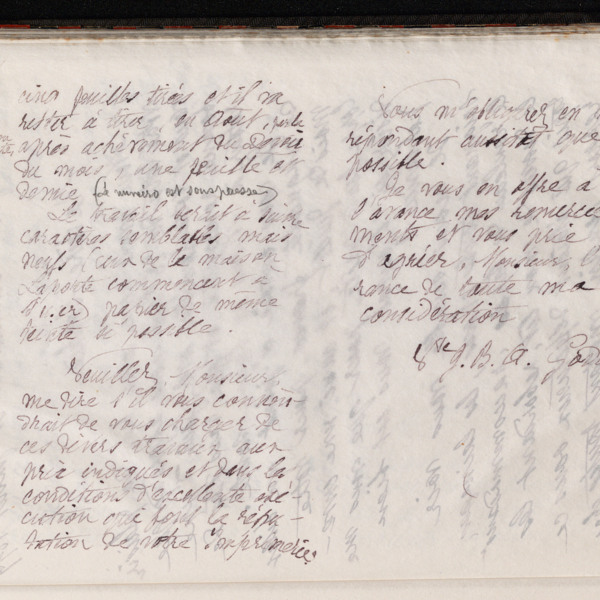 cinq feuilles tirés et il va
rester à tirer, en Août,
après achèvement du
du mois, une feuille et
demie (le numéro est sous presse)
Le travail serait à suivre
caractères semblables mais
neufs (ceux de la maison
Laporte commencent à
s'user) papier de même
teinte si possible.
Veuillez, Monsieur,
me dire s'il vous convien-
drait de vous charger de
ces divers travaux aux
prix indiqués et dans la
condition d'excellente exé-
cution qui font la répu-
tation de votre Imprimerie.
Vous m'obligerez en
répondant aussitôt que
possible.
Je vous en offre à
l'avance mes remercie
ments et vous prie
d'agréer, Monsieur, l'
rance de toute ma
considération
J. B. A. God